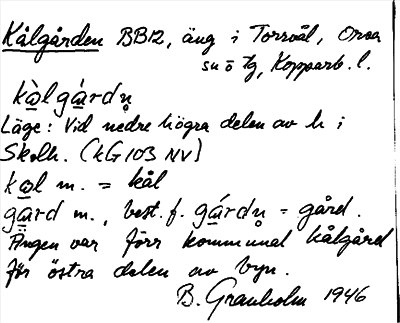 Kålgården BB12, äng i Torrvål, Orsa
sn o tg, Kopparb. l.
kàlgárdn̥
Läge: Vid nedre högra delen av h i
Skolh. (kG103 NV)
kal m. = kål
gard m., best. f. gárdn̥ = gård.
Ängen var förr kommunal kålgård
för östra delen av byn.
B. Granholm 1946